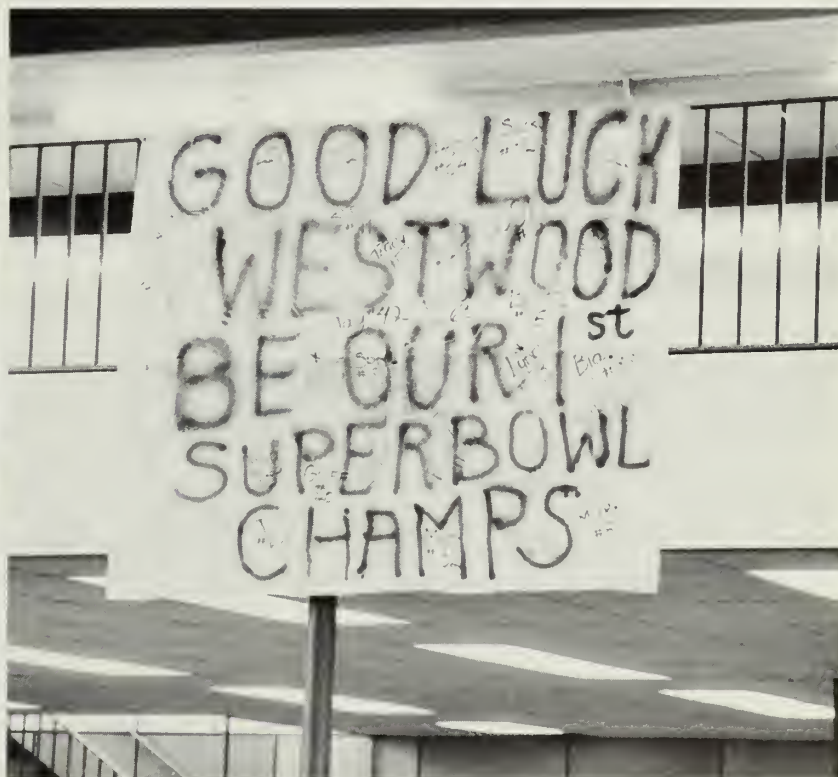 GOOD LUCK
WESTWOOD
BE OUR 1st
SUPERBOWL
CHAMPS